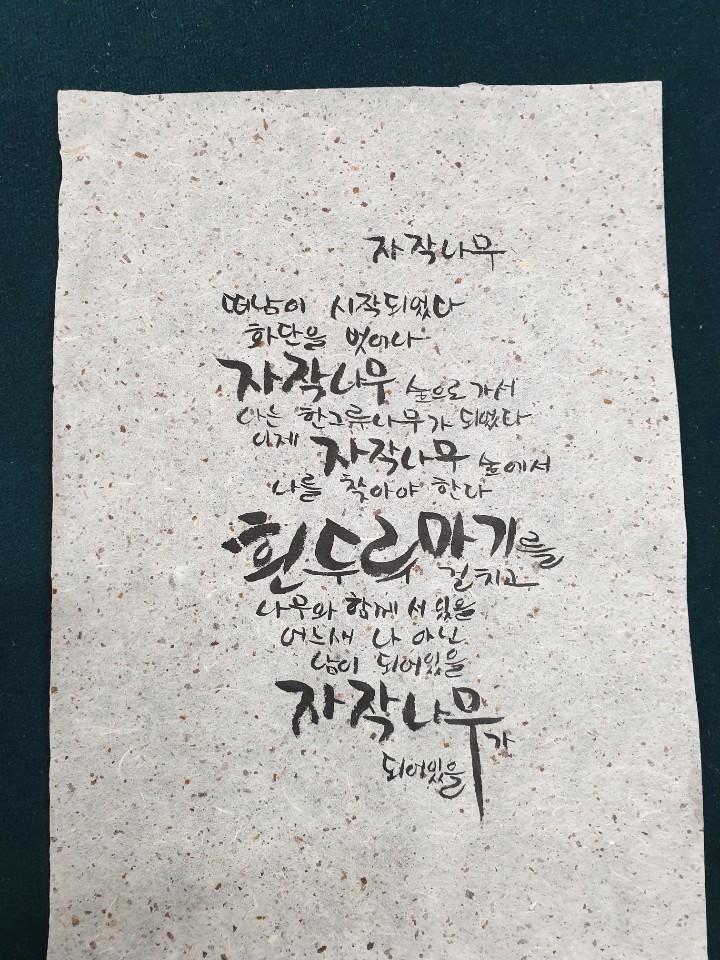 자작나무
떠남이 시작되었다
화단을 벗어나
자작나무 숲으로 가서
나는 한그류나무가 되었다
이제 자작나무 숲에서
나를 찾아야 한다
흰두루마기를
걸치고
나무와 함께 서 있을
어느새 나 아닌
남이 되어있을
자작나무가
되어있을